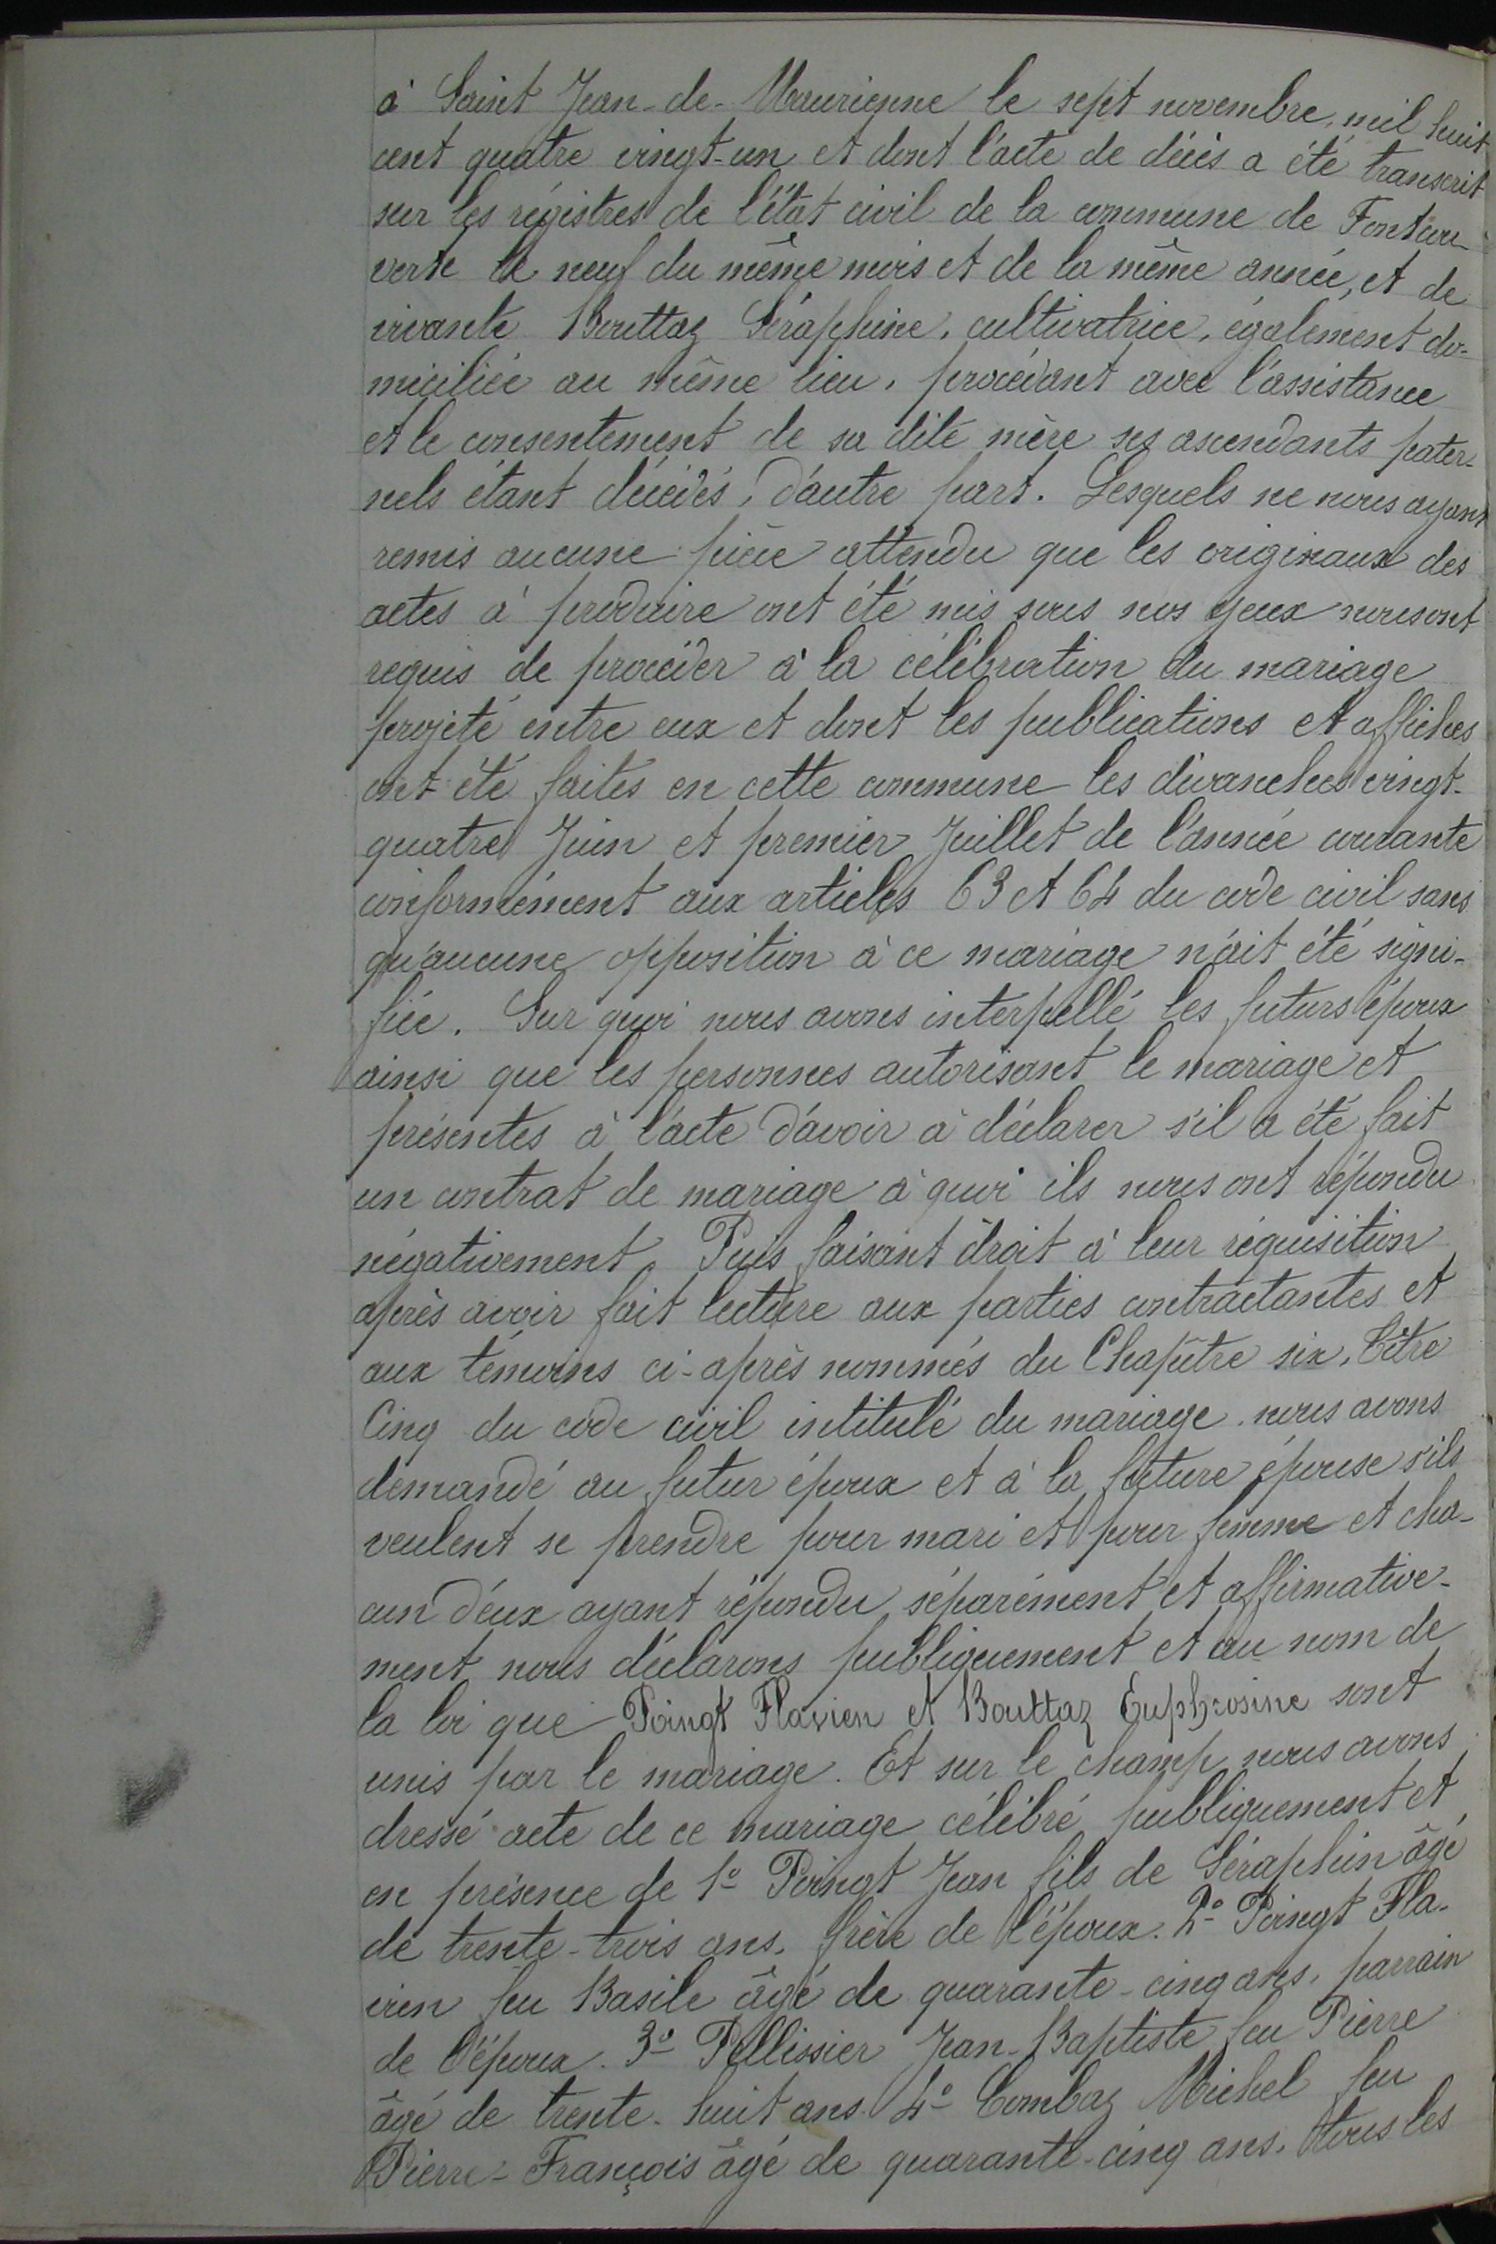 à Saint Jean-de-Maurienne le sept novembre, mil huit
cent quatre vingt-un et dont l'acte de décès a été transcrit
sur les régistres de l'état civil de la commune de Fontcou-
verte le neuf du même mois et de la même année, et de
vivante Bouttaz Séraphine, cultivatrice, également do-
miciliée au même lieu, procédant avec l'assistance
et le consentement de sa dite mère ses ascendants pater-
nels étant décédés, d'autre part. Lesquels ne nous ayant
remis aucune pièce attendu que les originaux des
actes à produire ont été mis sous nos yeux nous ont
requis de procéder à la célébration du mariage
projeté entre eux et dont les publications et affiches
ont été faites en cette commune les dimanches vingt-
quatre Juin et premier Juillet de l'année courante
conformément aux articles 63 et 64 du code civil sans
qu'aucune opposition à ce mariage n'ait été signi-
fiée. Sur quoi nous avons interpellé les futurs époux
ainsi que les personnes autorisant le mariage et
présentes à l'acte d'avoir à déclarer s'il a été fait
un contrat de mariage à quoi ils nous ont répondu
négativement. Puis faisant droit à leur réquisition
après avoir fait lecture aux parties contractantes et
aux témoins ci-après nommés du Chapitre six, titre
Cinq du code civil intitulé du mariage, nous avons
demandé au futur époux et à la future épouse s'ils
veulent se prendre pour mari et pour femme et cha-
cun d'eux ayant répondu séparément et affirmative-
ment, nous déclarons publiquement et au nom de
la loi que Poingt Flavien et Bouttaz Euphrosine sont
unis par le mariage. Et sur le champ nous avons
dressé acte de ce mariage célébré publiquement et
en présence de 1° Poingt Jean fils de Séraphin âgé
de trente-trois ans, frère de l'époux. 2° Poingt Fla-
vien feu Basile âgé de quarante-cinq ans, parrain
de l'époux. 3° Pellissier Jean-Baptiste feu Pierre
âgé de trente-huit ans. 4° Combaz Michel feu
Pierre-François âgé de quarante-cinq ans, tous les